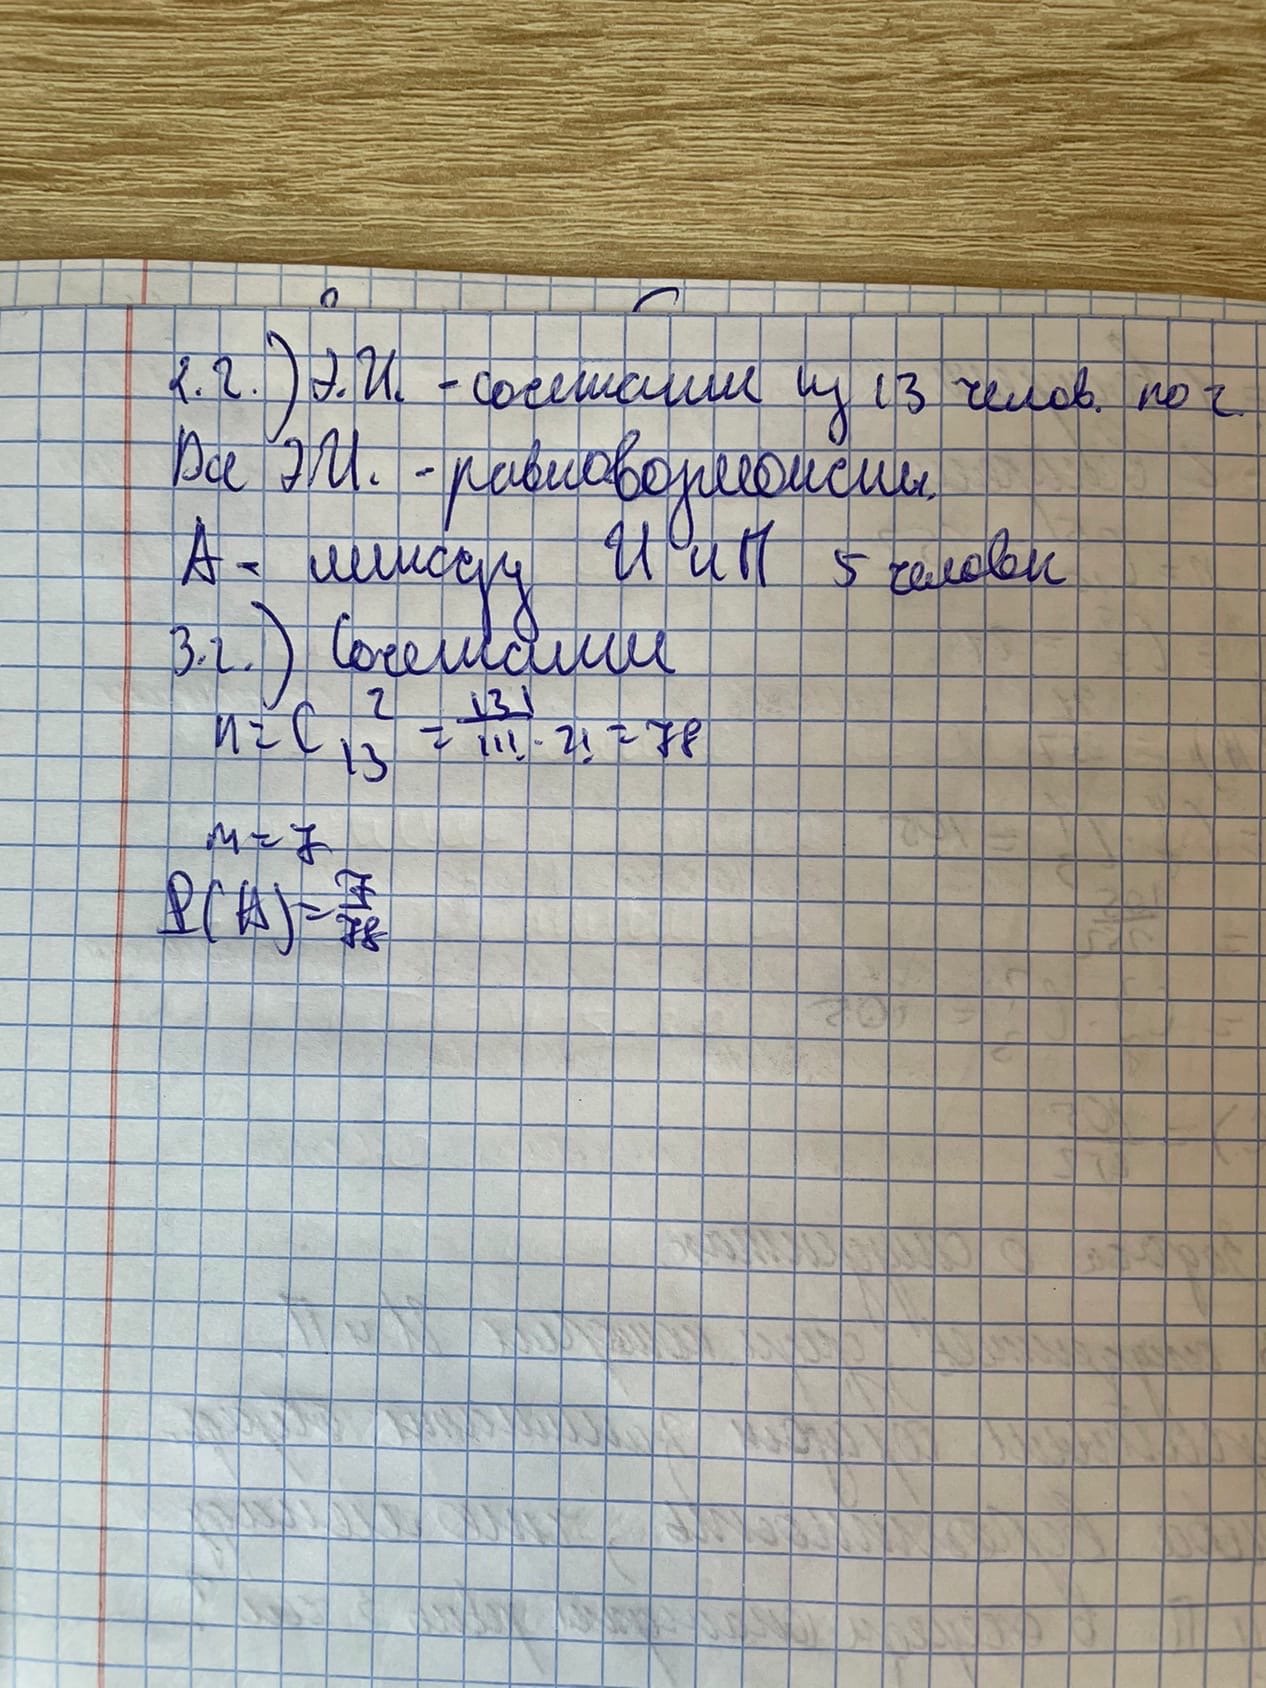 2.2.) Э.И. - сочетании из 13 челов. по 2.
Все Э.И. - равновозможны.
А - между И и П 5 человек
3.2.) Сочетании
n = C 2 13 = 13! / 11! · 2! = 78
m = 7
P(A) = 7/78